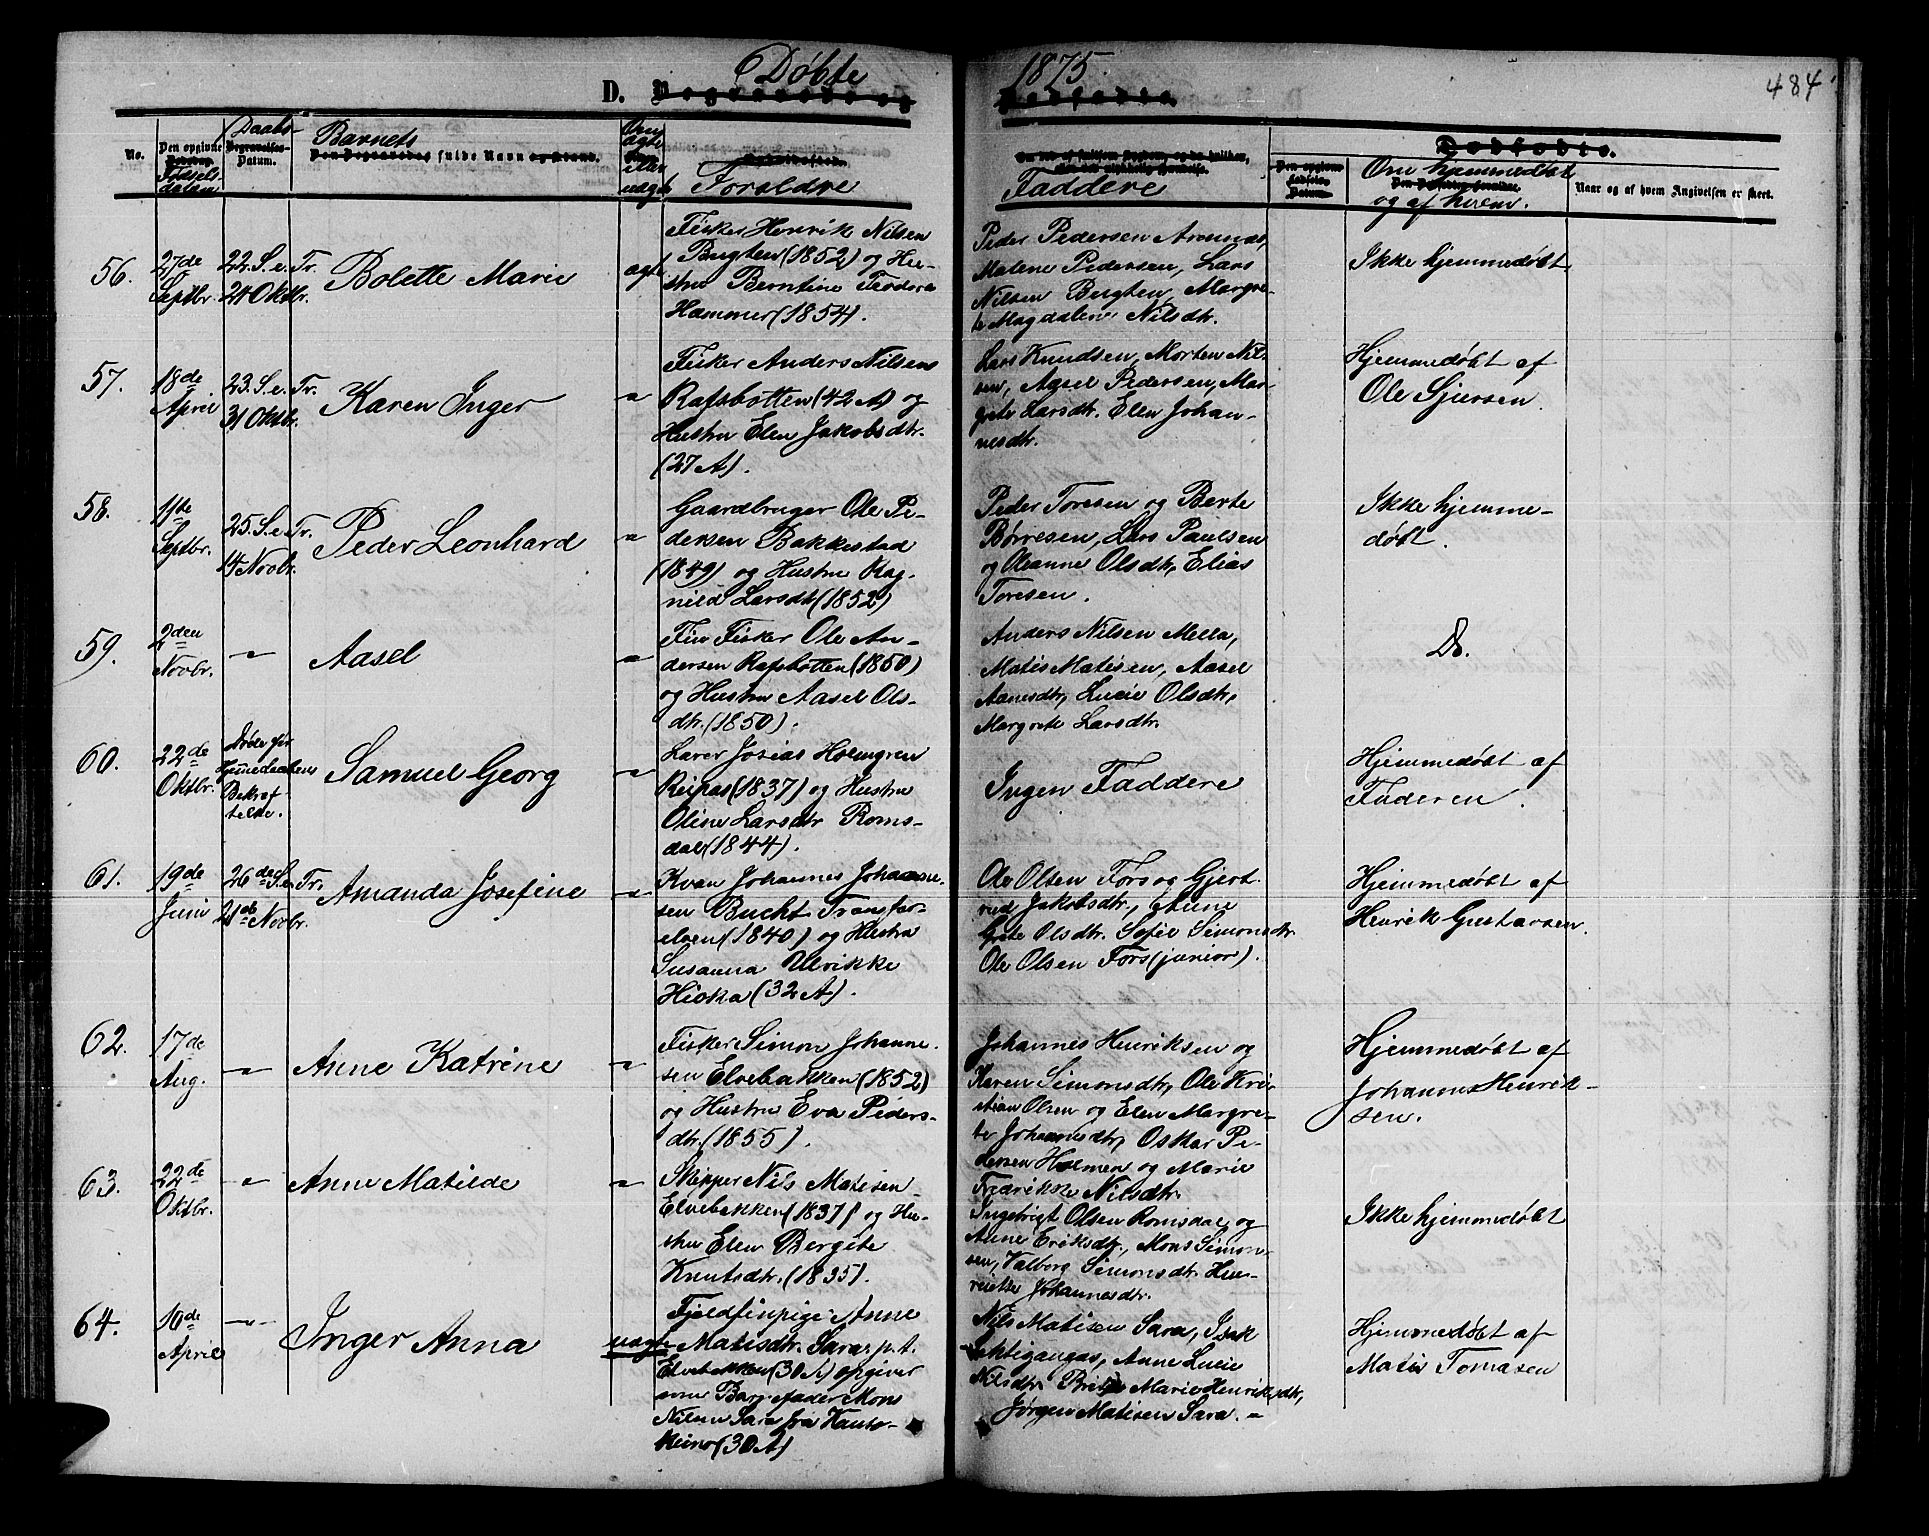 Døbte 1875.
484
D. Begravede og Dødfødte.
No.
Den opgivne
Fødselsdatum
Daabs-
Begravelses-
Datum.
Barnets
Den Begravedes fulde Navn og Stand.
Om
ægte
eller
uægte
Opholdssted.
Forældre
Faddere
Dødfødte.
Om hjemmedøbt
og af hvem.
Naar og af hvem Angivelsen er skeet.
56.
27de
Septbr.
22. S. e. Tr.
24 Oktbr.
Bolette Marie
ægte
Fisker Henrik Nilsen
Bugten (1852) og Hu-
stru Berntine Teodora
Hammer (1854).
Peder Pedersen Aronnes,
Malene Pedersen, Lars
Nilsen Bugten, Margre-
te Magdalene Nilsdtr.
Ikke hjemmedøbt
57.
18de
April
23. S. e. Tr.
31 Oktbr.
Karen Inger
"
Fisker Anders Nilsens
Rafsbotten (42 A) og
Hustru Elen Jakobsdtr.
(27 A).
Lars Knudsen, Morten Nil-
sen, Aksel Pedersen, Mar-
grete Larsdtr. Elen Johan-
nesdtr.
Hjemmedøbt af
Ole Sjursen.
58.
11te
Septbr.
25. S. e. Tr.
14 Novbr.
Peder Leonhard
"
Gaardbruger Ole Pe-
dersen Bakkestad
(1849) og Hustru Rag-
nild Larsdtr (1852)
Peder Toresen og Berte
Børresen, Lars Paulsen
og Oleanne Olsdtr, Elias
Toresen.
Ikke hjemme-
døbt.
59.
2den
Novbr.
"
Aasel
"
Fin Fisker Ole An-
dersen Rafsbotten (1850)
og Hustru Aasel Ols-
dtr. (1850).
Anders Nilsen Mella,
Matis Matisen, Aasel
Aanesdtr, Lucie Olsdtr,
Margrete Larsdtr.
Do.
60.
22de
Oktbr.
Døde før
Hjemmedaabens
Bekræf-
telse.
Samuel Georg
"
Lærer Josias Holmgren
Reipas (1837) og Hustru
Oline Larsdtr Roms-
dal (1844).
Ingen Faddere
Hjemmedøbt af
Faderen.
61.
19de
Juni
26de S. e. Tr.
21de Novbr.
Amanda Josefine
"
Kvæn Johannes Johanne-
sen Bucht Tranfar-
elven (1840) og Hustru
Susanna Ulrikke
Hioka (32 A).
Ole Olsen Fors og Gjert-
rud Jakobsdtr, Anne
Grete Olsdtr. Sofie Simonsdtr.
Ole Olsen Fors (junior).
Hjemmedøbt af
Henrik Gustavsen.
62.
17de
Aug.
"
Anne Katrine
"
Fisker Simon Johanne-
sen Elvebakken (1852)
og Hustru Eva Peders-
dtr. (1855).
Johannes Henriksen og
Karen Simonsdtr, Ole Kri-
stian Olsen og Elen Margre-
te Johannesdtr, Oskar Pe-
dersen Holmen og Marie
Fredrikke Nilsdtr.
Hjemmedøbt af
Johannes Henrik-
sen.
63.
22de
Oktbr.
"
Anne Matilde
"
Skipper Nils Matisen
Elvebakken (1837) og Hu-
stru Elen Bergite
Knutsdtr. (1835).
Ingebrigt Olsen Romsdal, og
Anne Eriksdtr., Mons Simon-
sen, Valborg Simonsdtr. Hen-
riette Johannesdtr.
Ikke hjemmedøbt
64.
10de
April
"
Inger Anna
uægte
Fjeldfinpige Anne
Matisdtr. Sara, p. t.
Elvebakken (30 A) opgiver
som Barnefader Mons
Nilsen Sara fra Kauto-
keino (30 A)
Nils Matisen Sara, Isak
Aktigangas, Anne Lucie
Nilsdtr. Brita Marie Henriksdtr,
Jørgen Matisen Sara.
Hjemmedøbt af
Matis Tomasen